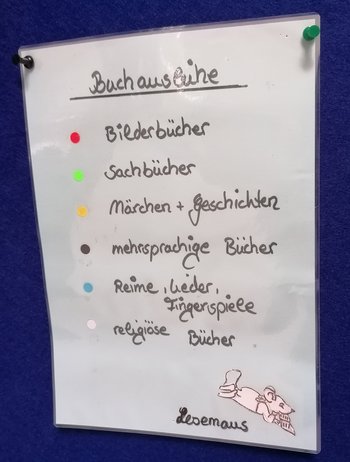 Buchausleihe
Bilderbücher
Sachbücher
Märchen + Geschichten
mehrsprachige Bücher
Reime, Lieder,
Fingerspiele
religiöse Bücher
Lesemaus